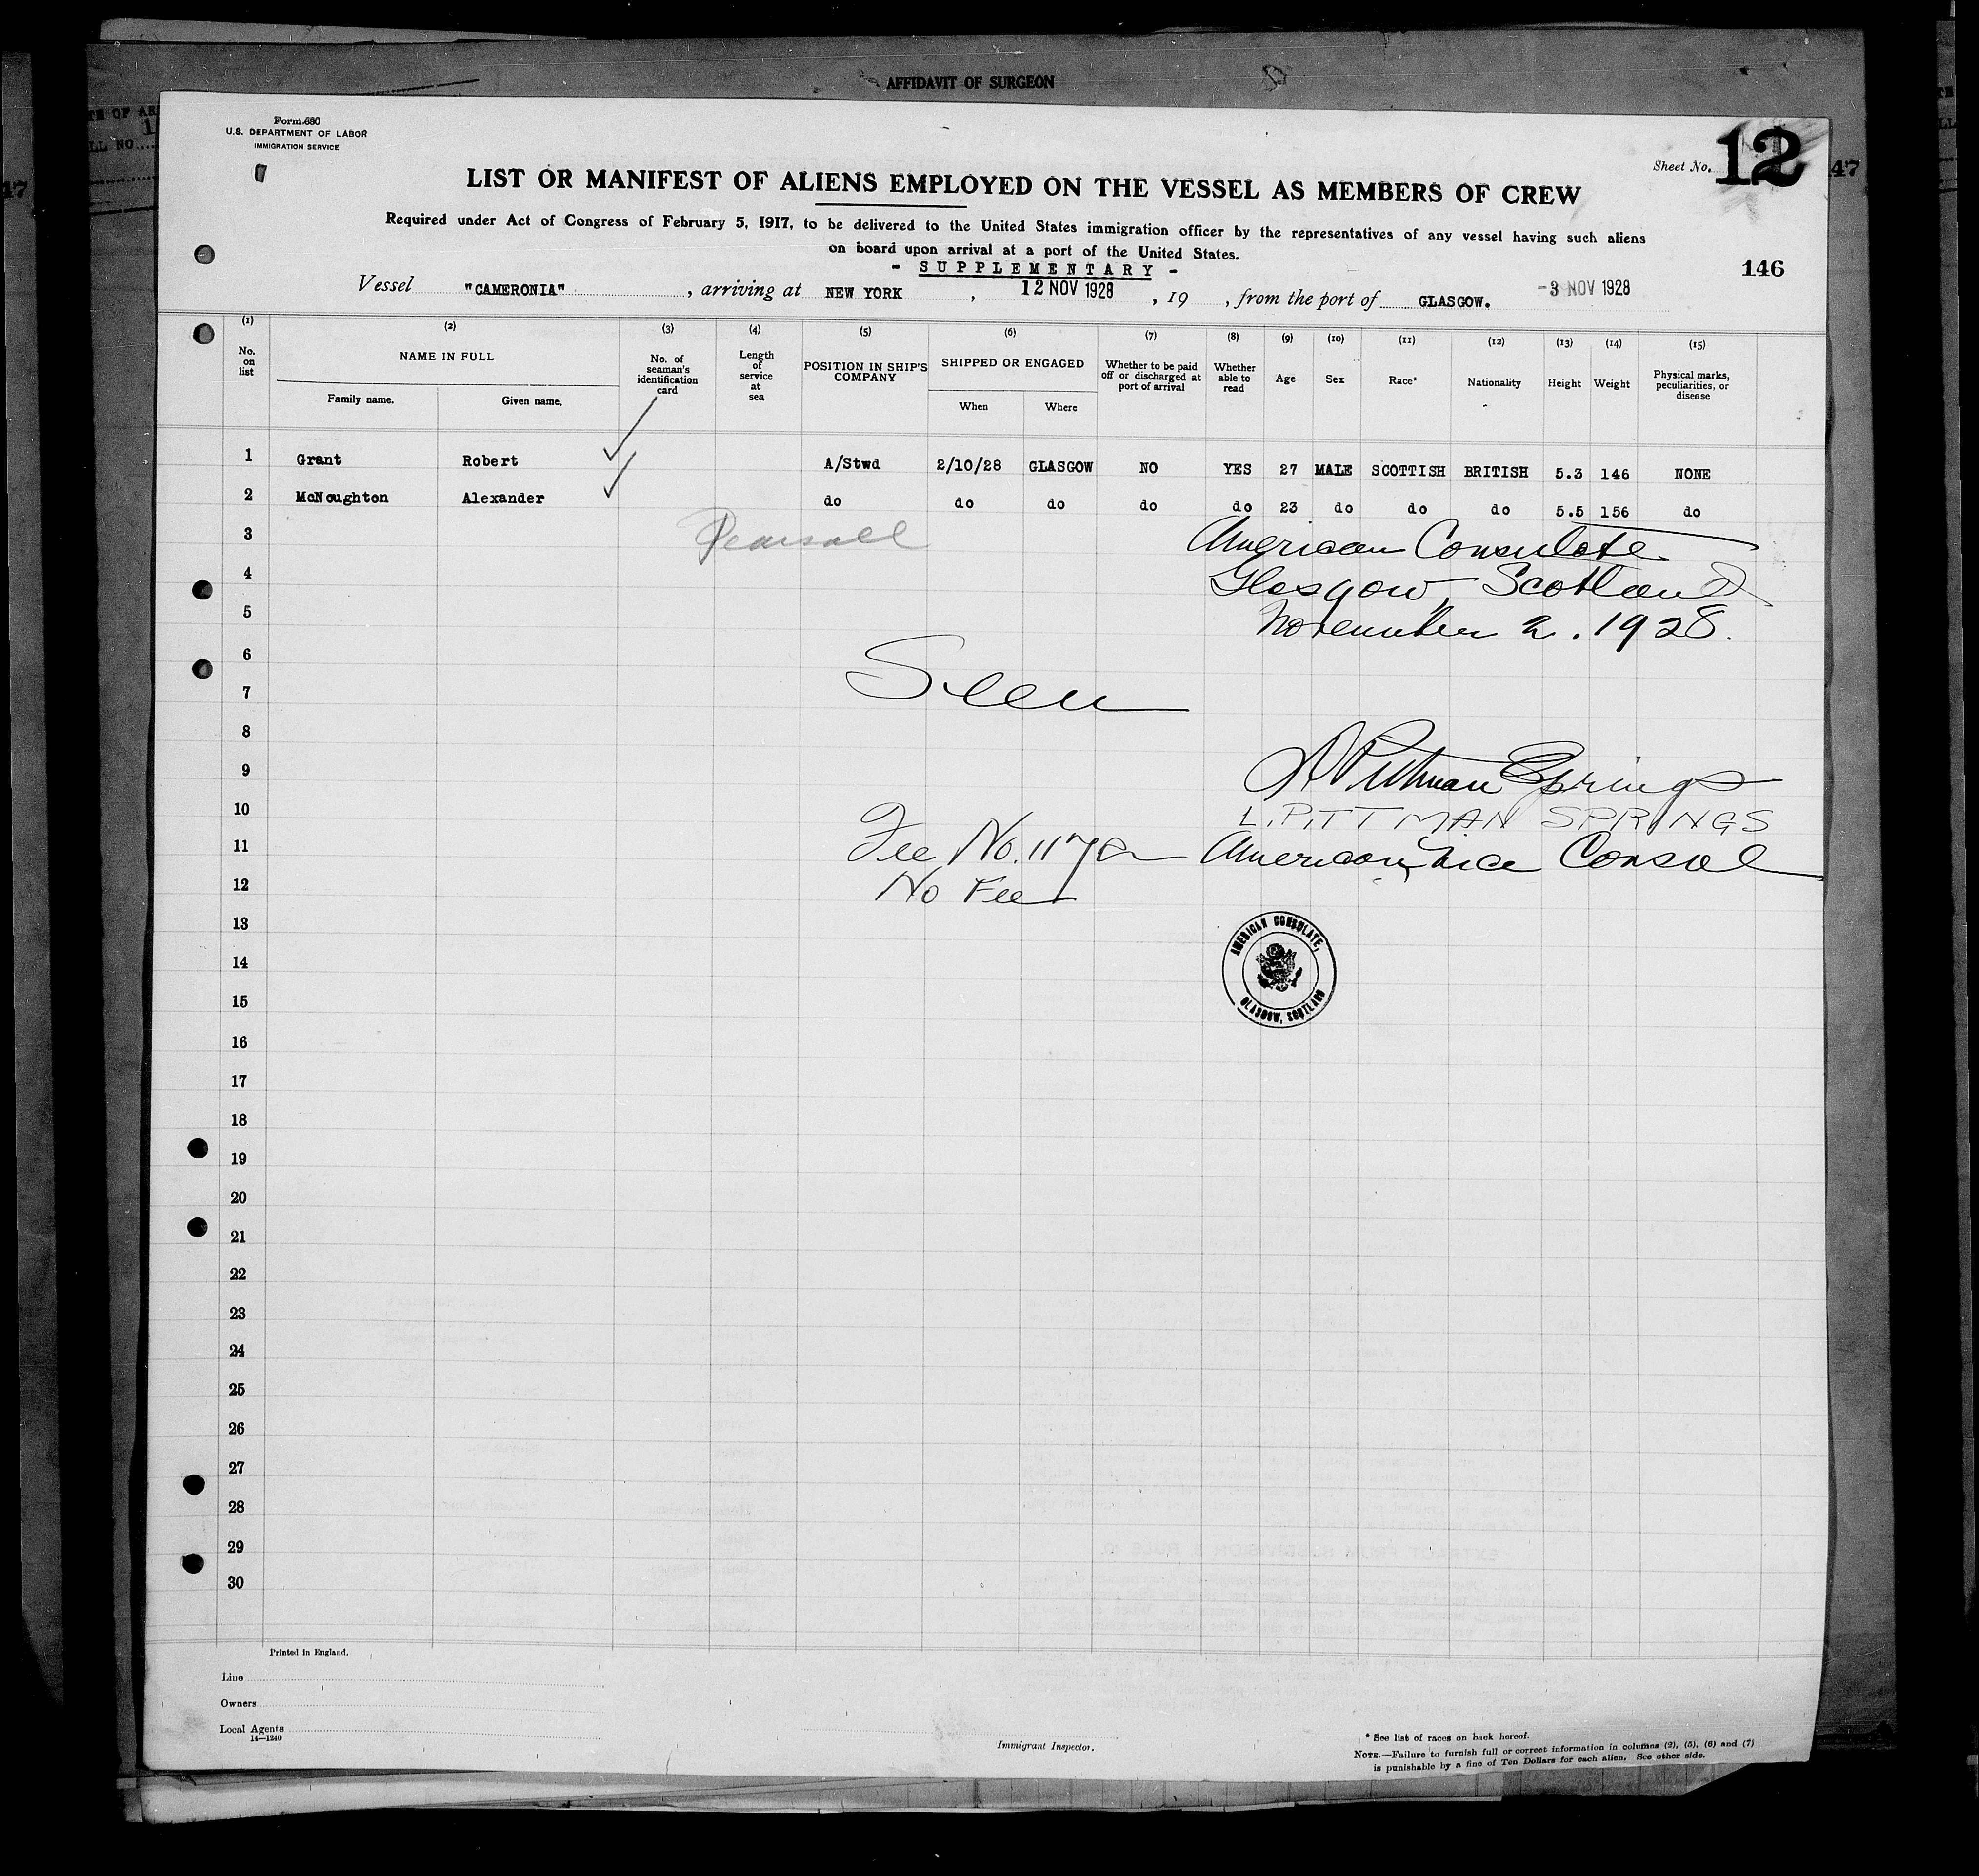 AFFIDAVIT OF SURGEON
Form 680
U.S. DEPARTMENT OF LABOR
IMMIGRATION SERVICE
Sheet No. 12
47
LIST OR MANIFEST OF ALIENS EMPLOYED ON THE VESSEL AS MEMBERS OF CREW
Required under Act of Congress of February 5, 1917, to be delivered to the United States immigration officer by the representatives of any vessel having such aliens
on board upon arrival at a port of the United States.
- SUPPLEMENTARY -
146
Vessel "CAMERONIA", arriving at NEW YORK, 12 NOV 1928, 19 , from the port of GLASGOW. -3 NOV 1928
(1) (2) (3) (4) (5) (6) (7) (8) (9) (10) (11) (12) (13) (14) (15)
No. on list NAME IN FULL No. of seaman's identification card Length of service at sea POSITION IN SHIP'S COMPANY SHIPPED OR ENGAGED Whether to be paid off or discharged at port of arrival Whether able to read Age Sex Race* Nationality Height Weight Physical marks, peculiarities, or disease
Family name. Given name. When Where
1 Grant Robert A/Stwd 2/10/28 GLASGOW NO YES 27 MALE SCOTTISH BRITISH 5.3 146 NONE
2 McNoughton Alexander do do do do do 23 do do do 5.5 156 do
3 Pearsall American Consulate
4 Glasgow, Scotland
5 November 2, 1928.
6
7 Seen
8
9 L Pittman Springs
10 L. PITTMAN SPRINGS
11 Fee No. American Vice Consul
12 No Fee
13
AMERICAN CONSULATE,
14
GLASGOW, SCOTLAND
15
16
17
18
19
20
21
22
23
24
25
26
27
28
29
30
Printed in England.
Line
Owners
Local Agents
14—1240
Immigrant Inspector.
* See list of races on back hereof.
NOTE.—Failure to furnish full or correct information in columns (2), (5), (6) and (7)
is punishable by a fine of Ten Dollars for each alien. See other side.